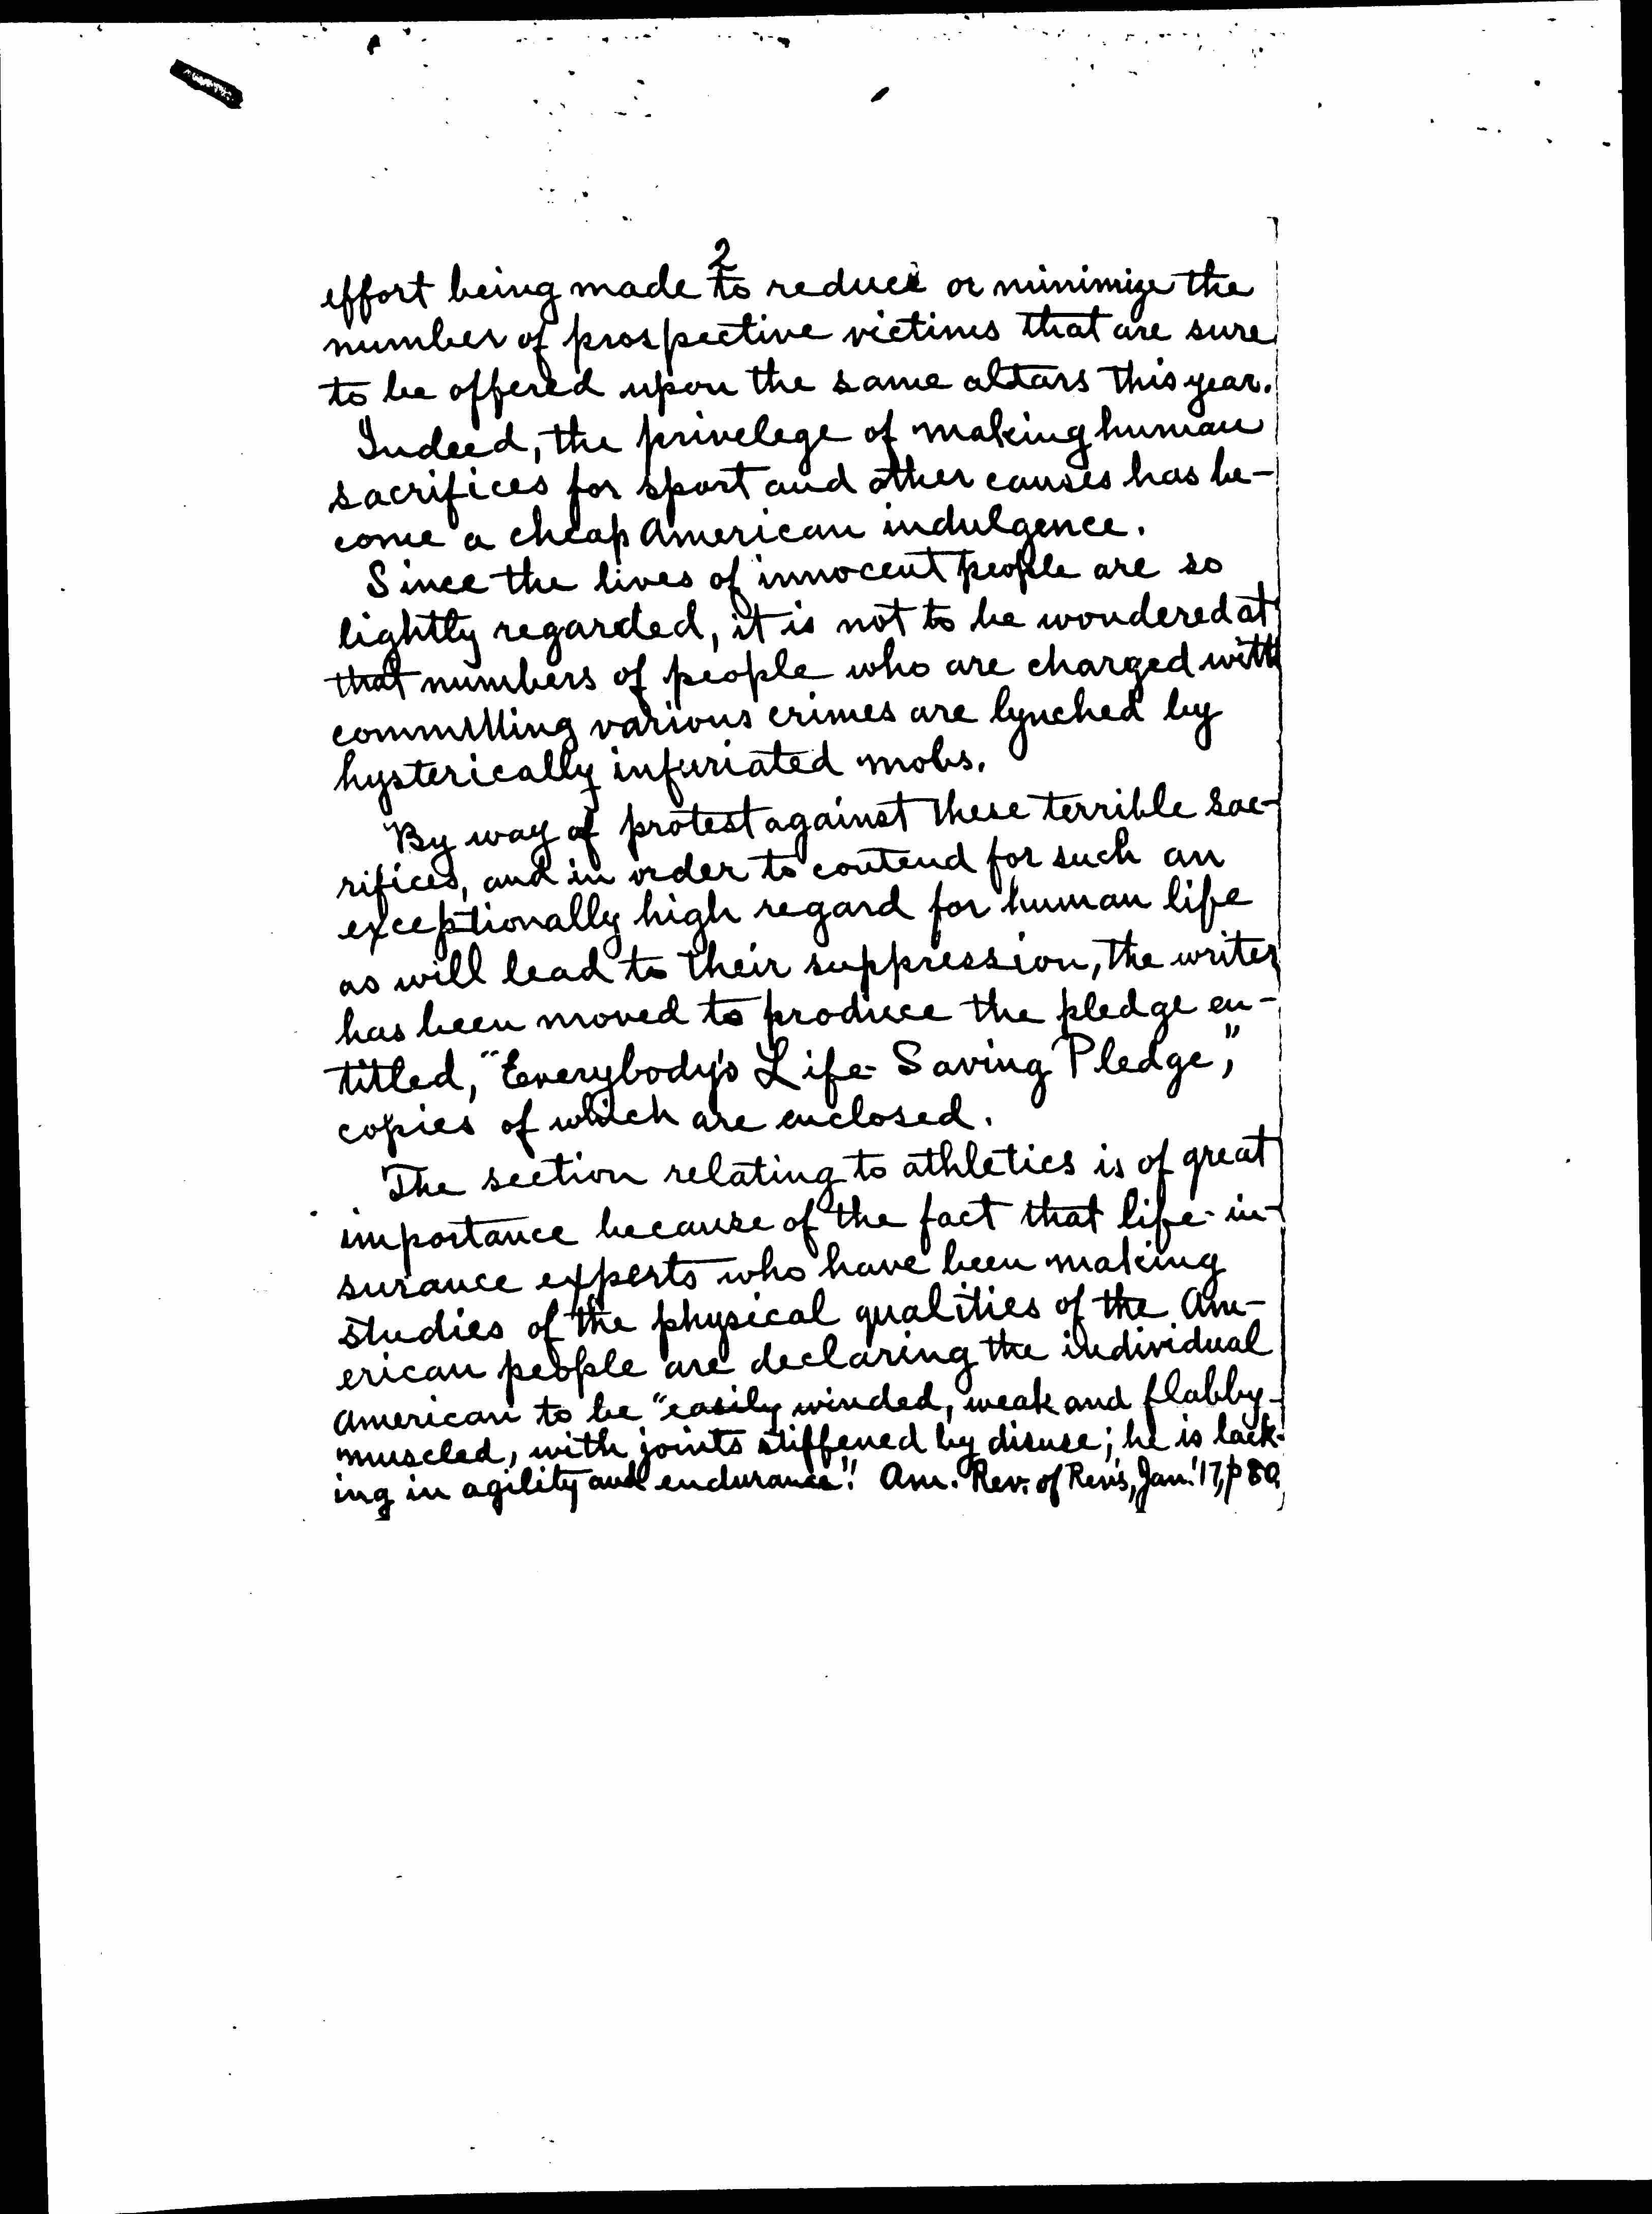 2
effort being made to reduce or minimize the
number of prospective victims that are sure
to be offered upon the same altars this year.
Indeed, the privelege of making human
sacrifices for sport and other causes has be-
come a cheap American indulgence.
Since the lives of innocent people are so
lightly regarded, it is not to be wondered at
that numbers of people who are charged with
committing various crimes are lynched by
hysterically infuriated mobs.
By way of protest against these terrible sac-
rifices, and in order to contend for such an
exceptionally high regard for human life
as will lead to their suppression, the writer
has been moved to produce the pledge en-
titled, "Everybody's Life-Saving Pledge,"
copies of which are enclosed.
The section relating to athletics is of great
importance because of the fact that life-in-
surance experts who have been making
studies of the physical qualities of the Am-
erican people are declaring the individual
American to be "easily winded, weak and flabby-
muscled, with joints stiffened by disuse; he is lack-
ing in agility and endurance". Am. Rev. of Rev's, Jan. '17, p 80.